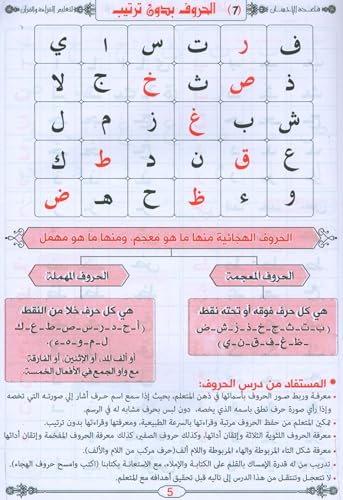 قاعدة الإحسان
(7) الحروف بدون ترتيب
لتعليم القراءة والقرآن
ف ر ت س ا ي
ذ ص ث خ ج لا
ش ب غ ز م ل
ع ق ن د ط ك
و ء ظ ح هـ ض
الحروف الهجائية منها ما هو معجم، ومنها ما هو مهمل
الحروف المعجمة
هي كل حرف فوقه أو تحته نقط
(ب-ت-ث-ج-خ-ذ-ز-ش-ض
-ظ-غ-ف-ق-ن-ي)
الحروف المهملة
هي كل حرف خلا من النقط
(أ-ح-د-ر-س-ص-ط-ع-ك
ل-م-و-ه-ء)
أو ألف المد، أو الإثنين، أو الفارقة
مع واو الجمع في الأفعال الخمسة.
• المستفاد من درس الحروف:
• معرفة وربط صور الحروف بأسمائها في ذهن المتعلم، بحيث إذا سمع اسم حرف أشار إلى صورته التي تخصه
وإذا رأى صورة حرف نطق باسمه الذي يخصه، دون لبس بحرف مشابه له في الرسم.
• تمكين المتعلم من حفظ الحروف مرتبة وقراءتها بالسرعة الطبيعية، ومعرفتها وقراءتها بدون ترتيب.
• معرفة الحروف اللثوية الثلاثة وإتقان أدائها، وكذلك حروف الصفير، كذلك معرفة الحروف المفخمة وإتقان أدائها
• معرفة شكل التاء المربوطة والهاء المربوطة واللام ألف (حرف مركب من اللام والألف).
• تدريس من له قدرة الإمساك بالقلم على الكتابة والإملاء، مع الاستعانة بكتابنا (اكتب وامسح حروف الهجاء).
• لا تتعجل وتنتقل من هذا الدرس إلى تاليه قبل تحقيق أهدافه مع المتعلم.
5